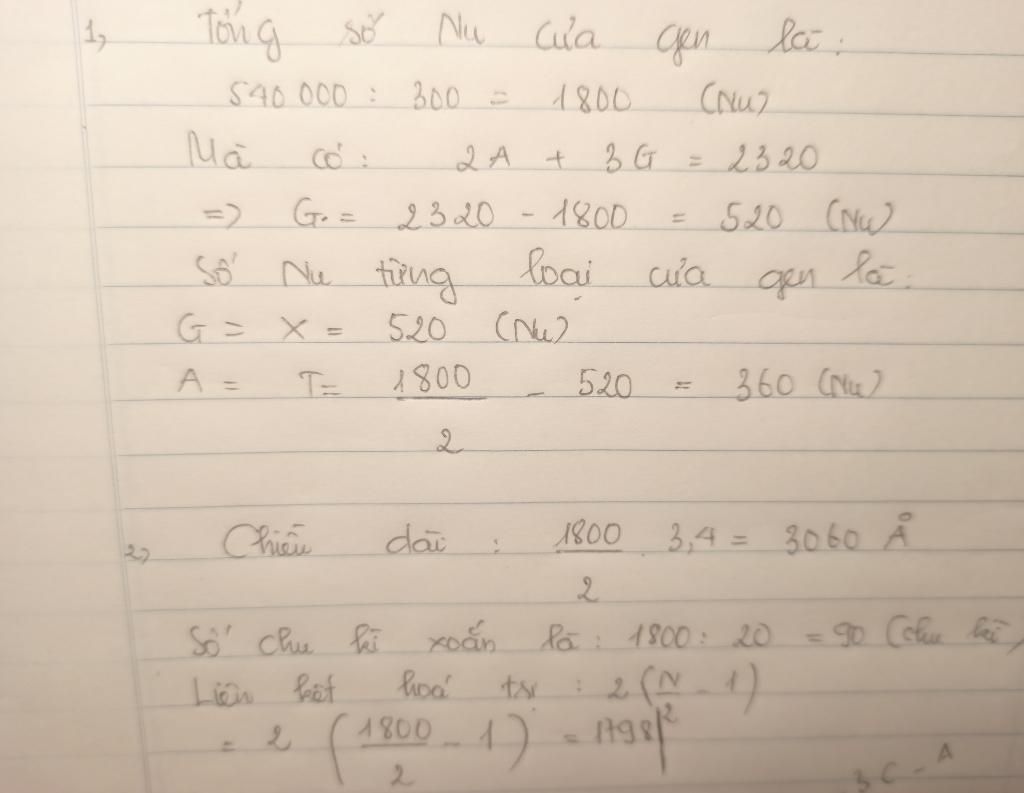 1, Tổng số Nu của gen là:
540 000 : 300 = 1800 (Nu)
Mà có: 2A + 3G = 2320
=> G = 2320 - 1800 = 520 (Nu)
Số Nu từng loại của gen là:
G = X = 520 (Nu)
A = T = 1800/2 - 520 = 360 (Nu)
2, Chiều dài : 1800/2 . 3,4 = 3060 Å
Số chu kì xoắn là : 1800 : 20 = 90 (chu kì)
Liên kết hoá trị : 2 (N/2 - 1)
= 2 (1800/2 - 1) = 1798
3C - A